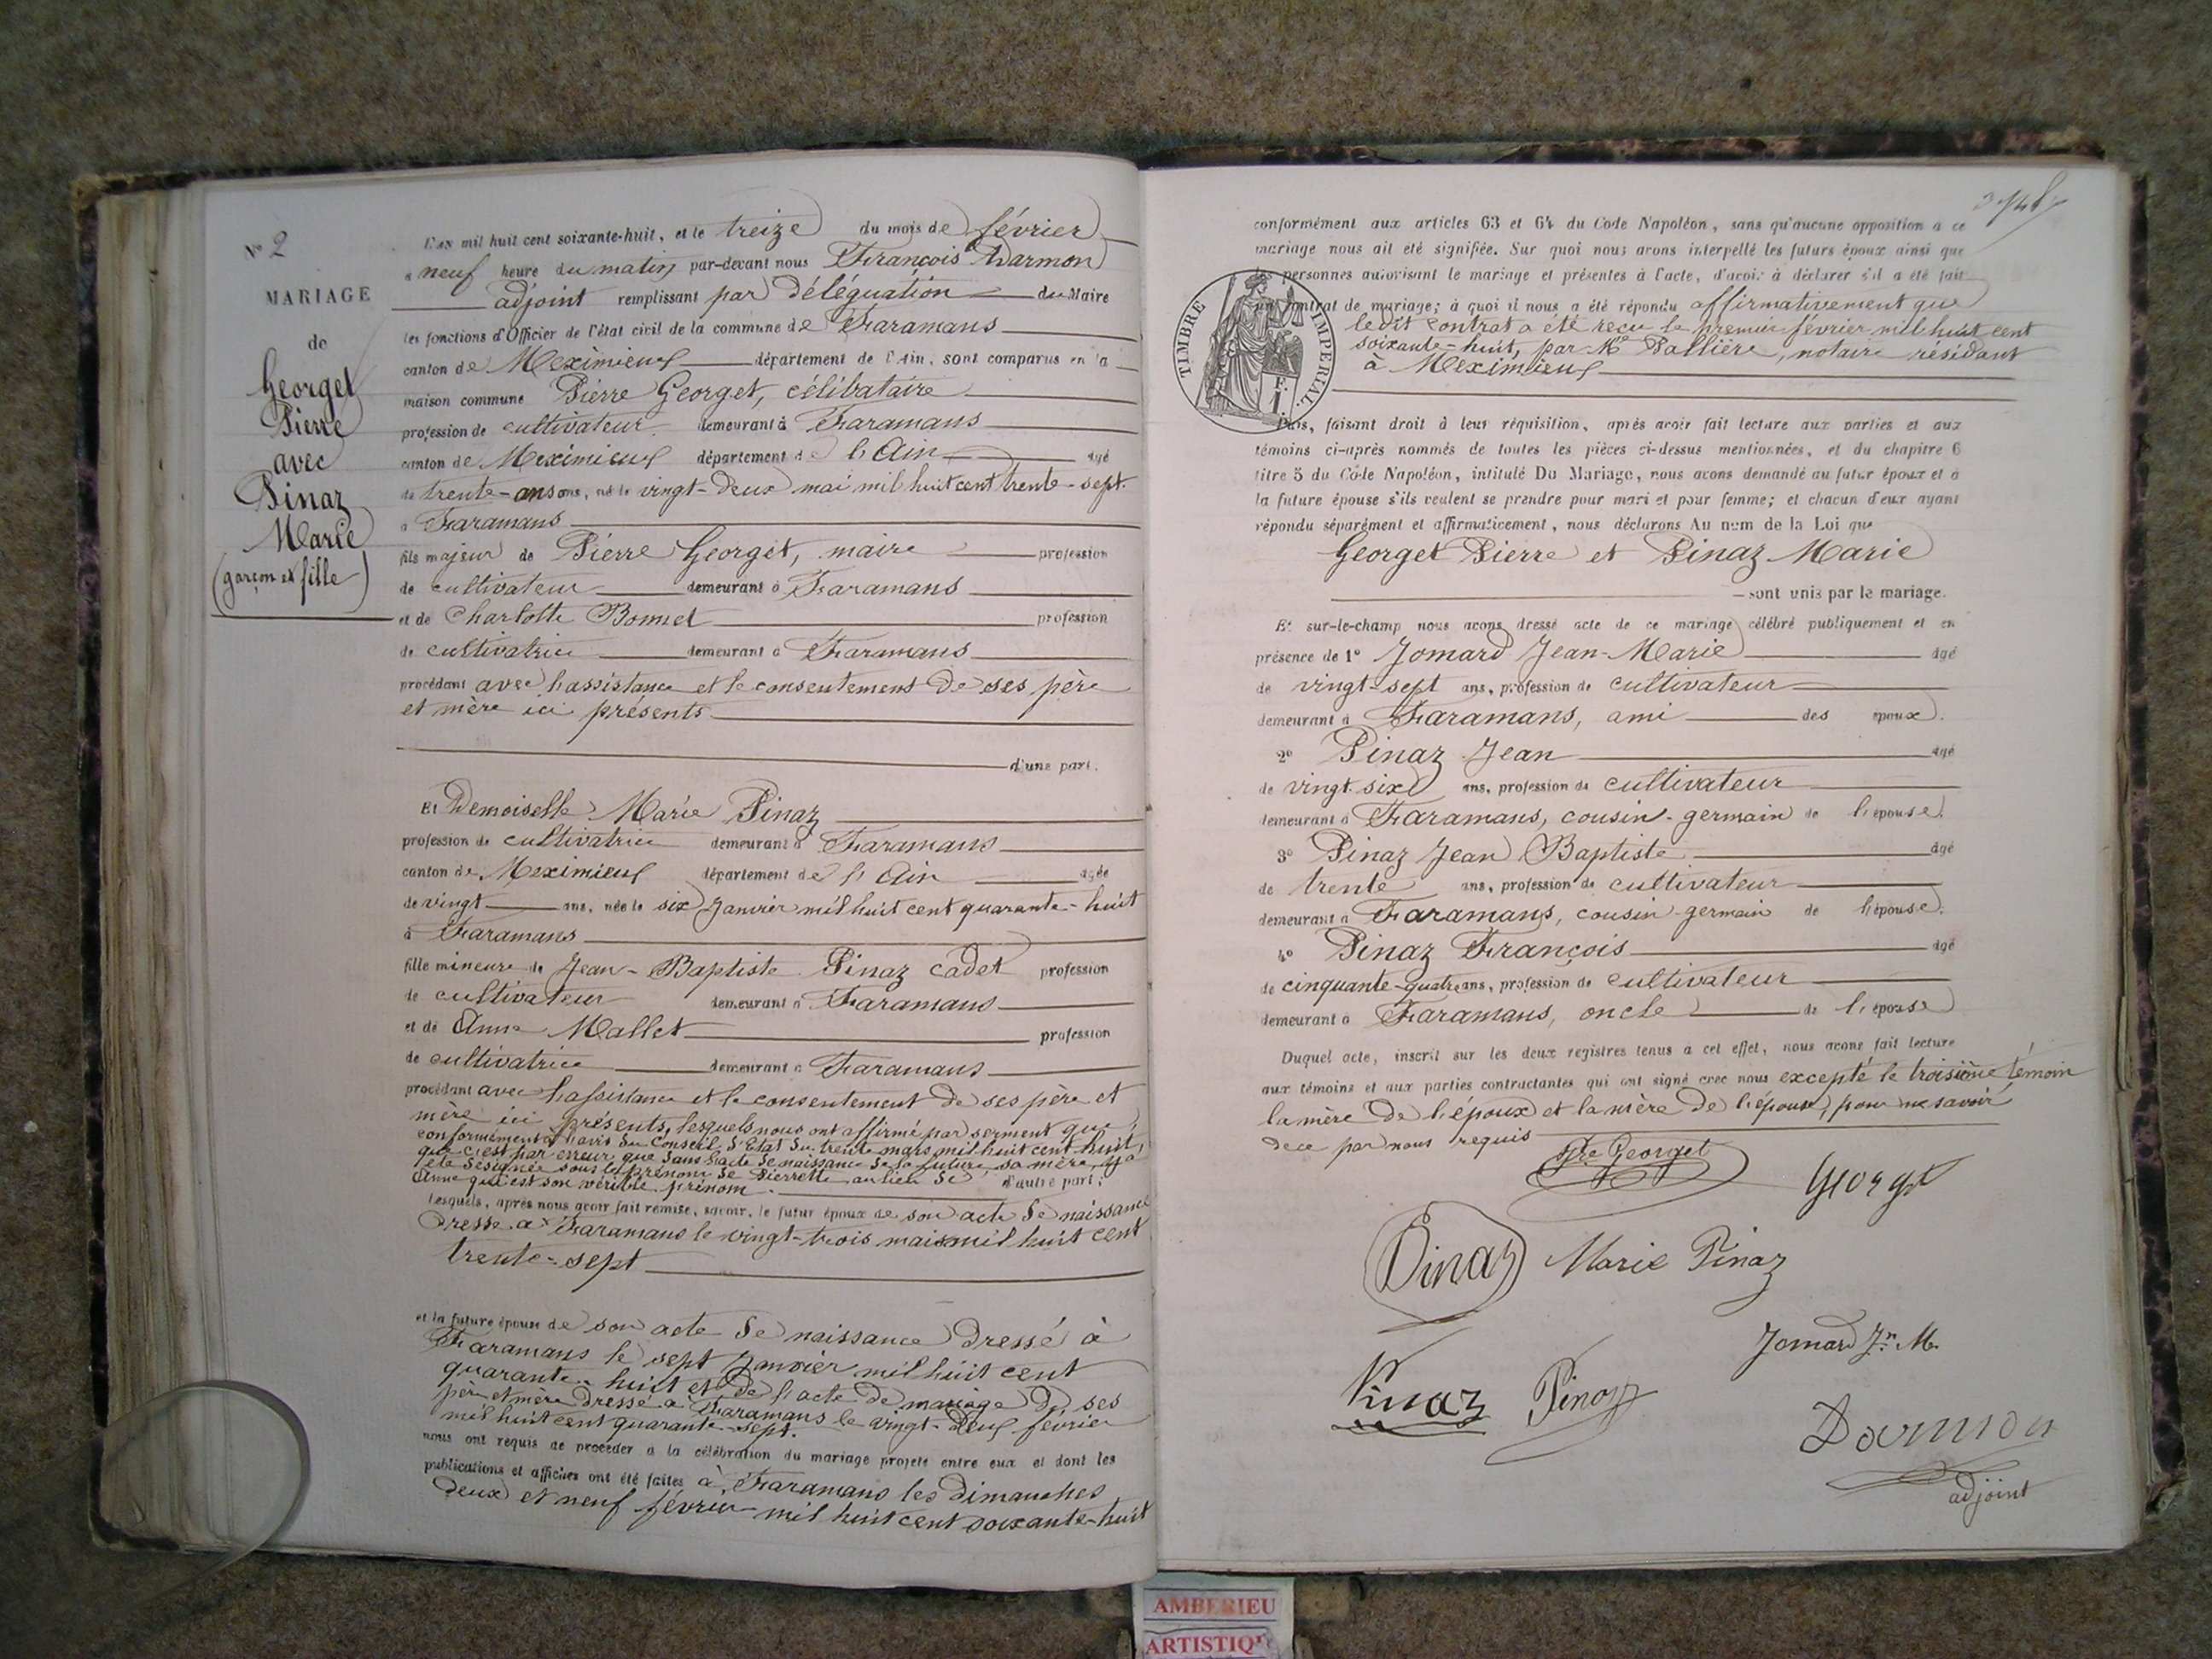 N° 2
MARIAGE
de
Georget
Pierre
avec
Pinaz
Marie
(garçon et fille)
L'an mil huit cent soixante-huit, et le treize du mois de février
à neuf heure du matin par-devant nous François Darmon
adjoint remplissant par délégation du Maire
les fonctions d'Officier de l'état civil de la commune de Faramans
canton de Meximieux département de l'Ain, sont comparus en la
maison commune Pierre Georget, célibataire
profession de cultivateur demeurant à Faramans
canton de Meximieux département de l'Ain âgé
de trente-ans ans, né le vingt-deux mai mil huit cent trente-sept.
à Faramans
fils majeur de Pierre Georget, maire profession
de cultivateur demeurant à Faramans
et de Charlotte Bonnet profession
de cultivatrice demeurant à Faramans
procédant avec l'assistance et le consentement de ses père
et mère ici présents
d'une part.
Et Demoiselle Marie Pinaz
profession de cultivatrice demeurant à Faramans
canton de Meximieux département de l'Ain agée
de vingt ans, née le six Janvier mil huit cent quarante-huit
à Faramans
fille mineure de Jean-Baptiste Pinaz cadet profession
de cultivateur demeurant à Faramans
et de Anne Mallet profession
de cultivatrice demeurant à Faramans
procédant avec l'assistance et le consentement de ses père et
mère ici présents, lesquels nous ont affirmé par serment que
conformément à l'avis du Conseil d'Etat du trente mars mil huit cent huit,
que c'est par erreur que dans l'acte de naissance de la future, sa mère, y a
été désignée sous les prénoms de Pierrette au lieu de
Anne qui est son véritble prénom. d'autre part;
Lesquels, après nous avoir fait remise, savoir, le futur époux de son acte de naissance
dressé à Faramans le vingt-trois mai mil huit cent
trente-sept
et la future épouse de son acte de naissance dressé à
Faramans le sept Janvier mil huit cent
quarante-huit et de l'acte de mariage de ses
père et mère dressé à Faramans le vingt-deux février
mil huit cent quarante-sept.
nous ont requis de procéder à la célébration du mariage projeté entre eux et dont les
publications et affiches ont été faites à Faramans les dimanches
deux et neuf février mil huit cent soixante-huit
conformément aux articles 63 et 64 du Code Napoléon, sans qu'aucune opposition à ce
mariage nous ait été signifiée. Sur quoi nous avons interpellé les futurs époux ainsi que
les personnes autorisant le mariage et présentes à l'acte, d'avoir à déclarer s'il a été fait
contrat de mariage; à quoi il nous a été répondu affirmativement que
le dit contrat a été reçu le premier février mil huit cent
soixante-huit, par Me Pallière, notaire résidant
à Meximieux
TIMBRE IMPERIAL.
Puis, faisant droit à leur réquisition, après avoir fait lecture aux parties et aux
témoins ci-après nommés de toutes les pièces ci-dessus mentionnées, et du chapitre 6
titre 5 du Code Napoléon, intitulé Du Mariage, nous avons demandé au futur époux et à
la future épouse s'ils veulent se prendre pour mari et pour femme; et chacun d'eux ayant
répondu séparément et affirmativement, nous déclarons Au nom de la Loi que
Georget Pierre et Pinaz Marie
sont unis par le mariage.
Et sur-le-champ nous avons dressé acte de ce mariage célébré publiquement et en
présence de 1° Jomard Jean-Marie âgé
de vingt-sept ans, profession de cultivateur
demeurant à Faramans, ami des époux.
2° Pinaz Jean âgé
de vingt six ans, profession de cultivateur
demeurant à Faramans, cousin-germain de l'épouse.
3° Pinaz Jean Baptiste âgé
de trente ans, profession de cultivateur
demeurant à Faramans, cousin germain de l'épouse.
4° Pinaz François âgé
de cinquante-quatre ans, profession de cultivateur
demeurant à Faramans, oncle de l'épouse
Duquel acte, inscrit sur les deux registres tenus à cet effet, nous avons fait lecture
aux témoins et aux parties contractantes qui ont signé avec nous excepté le troisième témoin
la mère de l'époux et la mère de l'épouse, pour ne savoir
de ce par nous requis
Pre Georget
Georget
Pinaz Marie Pinaz
Jomard Jn. M.
Pinaz Pinaz
Darmon
adjoint
AMBERIEU
ARTISTIQU